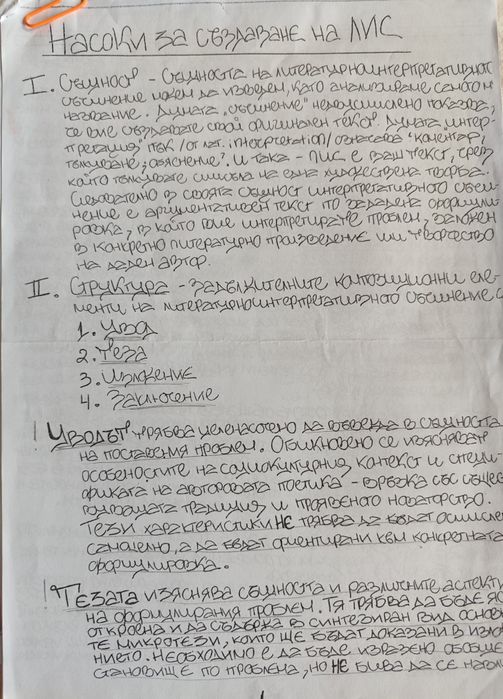 НАСОКИ ЗА СЪЗДАВАНЕ НА ЛИС
I. Същност - Същността на литературноинтерпретативното
съчинение можем да изведем, като анализираме самото му
название. Думата „съчинение" недвусмислено показва,
че вие създавате свой оригинален текст. Думата „интер-
претация" пък /от лат. interpretation/ означава "коментар,
тълкуване, обяснение". И така - ЛИС е ваш текст, чрез
който тълкувате смисъла на една художествена творба.
Следователно в своята същност интерпретативното съчи-
нение е аргументативен текст по зададена формули-
ровка, в който вие интерпретирате проблем, заложен
в конкретно литературно произведение или творчество
на даден автор.
II. Структура - задължителните композиционни еле-
менти на литературноинтерпретативното съчинение са
1. Увод
2. Теза
3. Изложение
4. Заключение
! Уводът трябва целенасочено да въвежда в същността
на поставения проблем. Обикновено се изясняват
особеностите на социокултурния контекст и специ-
фиката на авторовата поетика - връзка със същес
вуващата традиция и проявеното новаторство.
Тези характеристики НЕ трябва да бъдат осмисле
самоцелно, а да бъдат ориентирани към конкретната
формулировка.
! Тезата изяснява същността и различните аспекти
на формулирания проблем. Тя трябва да бъде яс
откроена и да съдържа в синтезиран вид основ
те микротези, които ще бъдат доказани в изло
нието. Необходимо е да бъде изразено обобще
становище по проблема, но НЕ бива да се